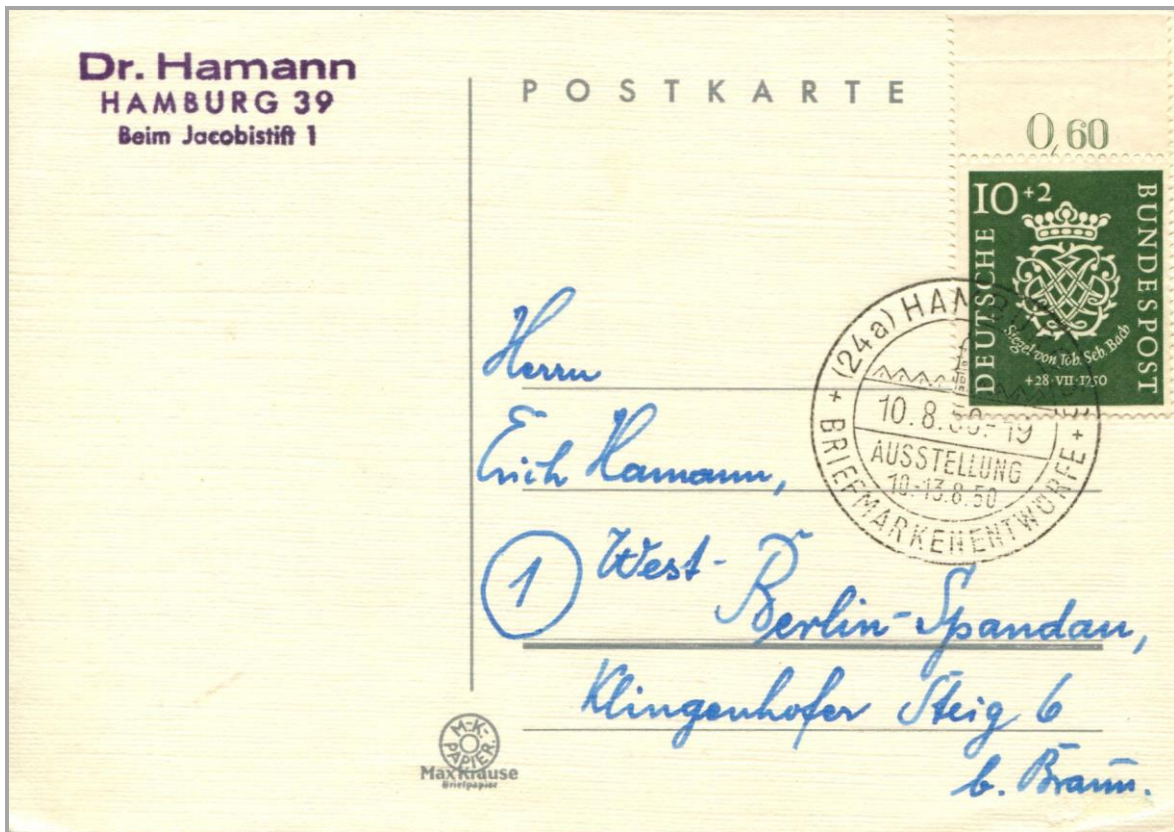 Dr. Hamann
HAMBURG 39
Beim Jacobistift 1
POSTKARTE
0,60
10+2
DEUTSCHE
BUNDESPOST
Siegel von Joh. Seb. Bach
+28·VII·1750
(24a) HAMBURG
10.8.50.-19
AUSSTELLUNG
10.-13.8.50
+ BRIEFMARKENENTWÜRFE +
Herrn
Erich Hamann,
(1) West-
Berlin-Spandau,
Klingenhofer Steig 6
b. Braun.
M.-K.-
PAPIER.
Max Krause
Briefpapier